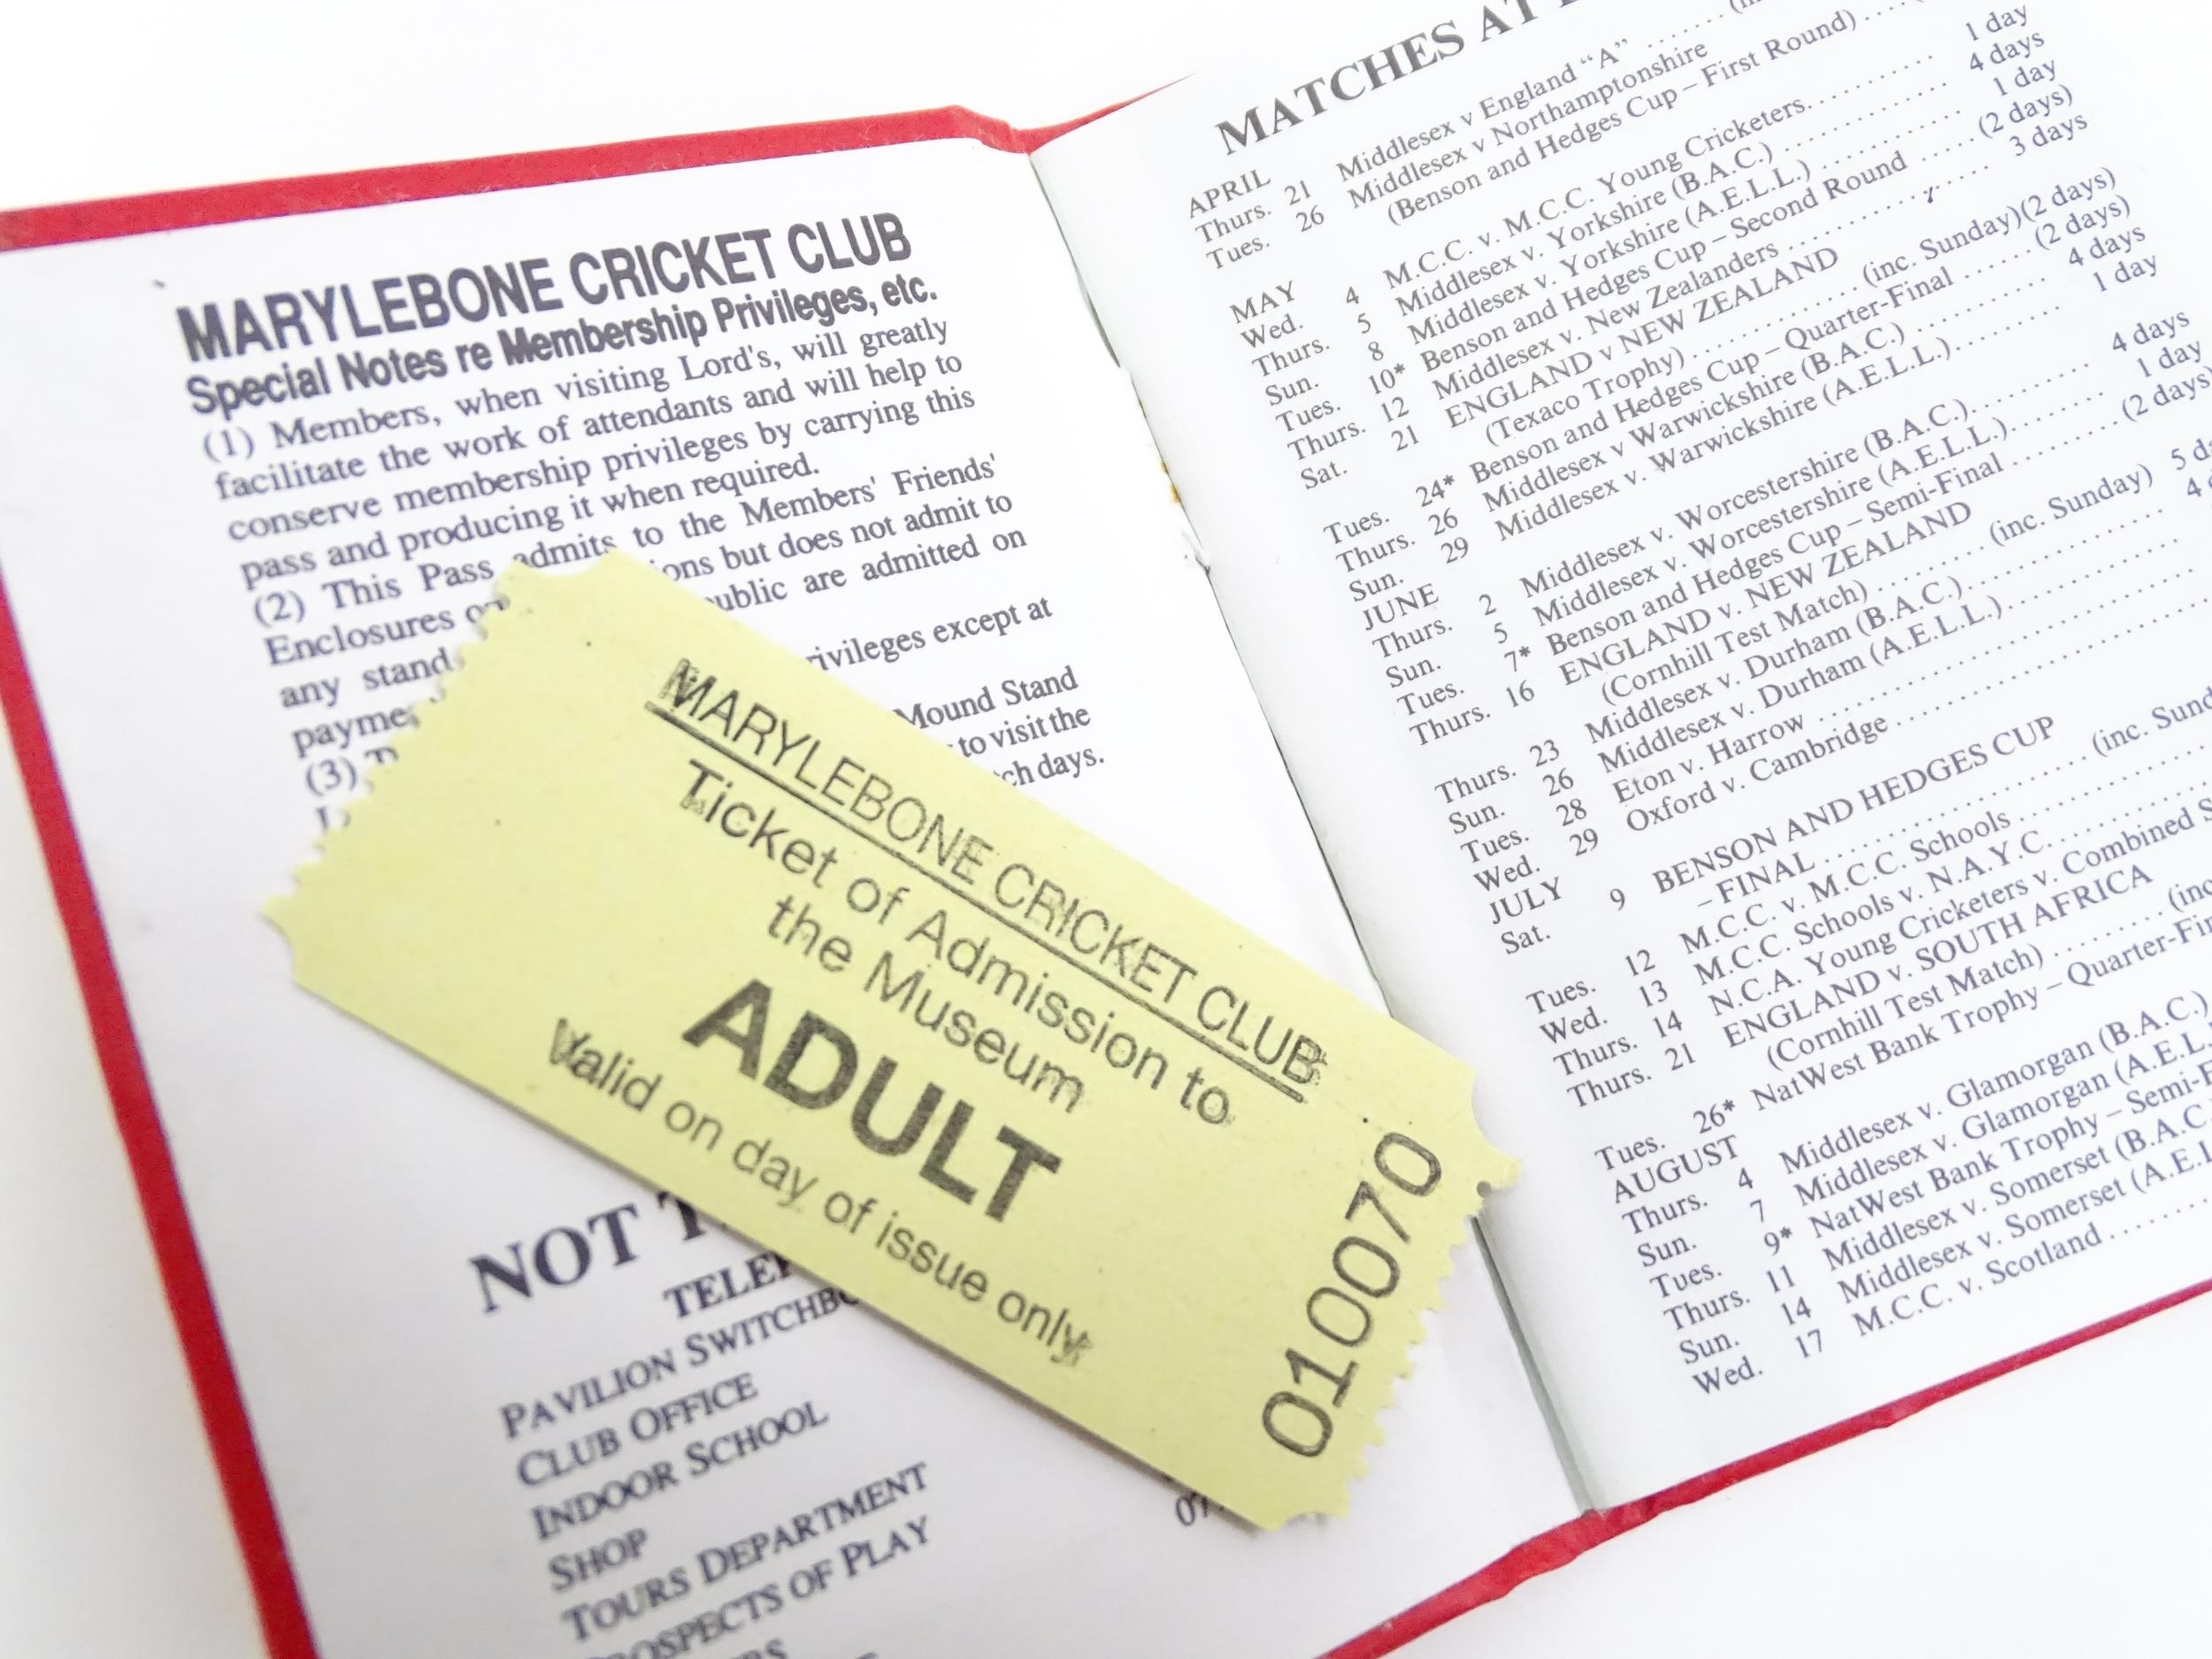 MARYLEBONE CRICKET CLUB
Special Notes re Membership Privileges, etc.
(1) Members, when visiting Lord's, will greatly
facilitate the work of attendants and will help to
conserve membership privileges by carrying this
pass and producing it when required.
(2) This Pass admits to the Members' Friends'
Enclosures but does not admit to
any stand are admitted on
except at
(3)
Mound Stand
to visit the
days.
NOT
PAVILION
CLUB OFFICE
INDOOR SCHOOL
SHOP
TOURS DEPARTMENT
OF PLAY
MARYLEBONE CRICKET CLUB
Ticket of Admission to
the Museum
ADULT
Valid on day of issue only
010070
MATCHES AT
APRIL
Thurs. 21 Middlesex v England “A”
Tues. 26 Middlesex v Northamptonshire
(Benson and Hedges Cup – First Round)
MAY
Wed. 4 M.C.C. v. M.C.C. Young Cricketers 1 day
Thurs. 5 Middlesex v. Yorkshire (B.A.C.) 4 days
Sun. 8 Middlesex v. Yorkshire (A.E.L.L.) 1 day
Tues. 10* Benson and Hedges Cup – Second Round (2 days)
Thurs. 12 Middlesex v. New Zealanders 3 days
Sat. 21 ENGLAND v NEW ZEALAND
(Texaco Trophy) (inc. Sunday)(2 days)
Tues. 24* Benson and Hedges Cup – Quarter-Final (2 days)
Thurs. 26 Middlesex v Warwickshire (B.A.C.) 4 days
Sun. 29 Middlesex v. Warwickshire (A.E.L.L.) 1 day
JUNE
Thurs. 2 Middlesex v. Worcestershire (B.A.C.) 4 days
Sun. 5 Middlesex v. Worcestershire (A.E.L.L.) 1 day
Tues. 7* Benson and Hedges Cup – Semi-Final (2 days)
Thurs. 16 ENGLAND v. NEW ZEALAND
(Cornhill Test Match) (inc. Sunday) 5
Thurs. 23 Middlesex v. Durham (B.A.C.) 4
Sun. 26 Middlesex v. Durham (A.E.L.L.)
Tues. 28 Eton v. Harrow
Wed. 29 Oxford v. Cambridge
JULY
Sat. 9 BENSON AND HEDGES CUP
– FINAL (inc.
Tues. 12 M.C.C. v. M.C.C. Schools
Wed. 13 M.C.C. Schools v. N.A.Y.C.
Thurs. 14 N.C.A. Young Cricketers v. Combined
Thurs. 21 ENGLAND v. SOUTH AFRICA
(Cornhill Test Match)
Tues. 26* NatWest Bank Trophy –
AUGUST
Thurs. 4 Middlesex v. Glamorgan (B.A.C.)
Sun. 7 Middlesex v. Glamorgan
Tues. 9* NatWest Bank Trophy –
Thurs. 11 Middlesex v. Somerset
Sun. 14 Middlesex v. Somerset
Wed. 17 M.C.C. v. Scotland